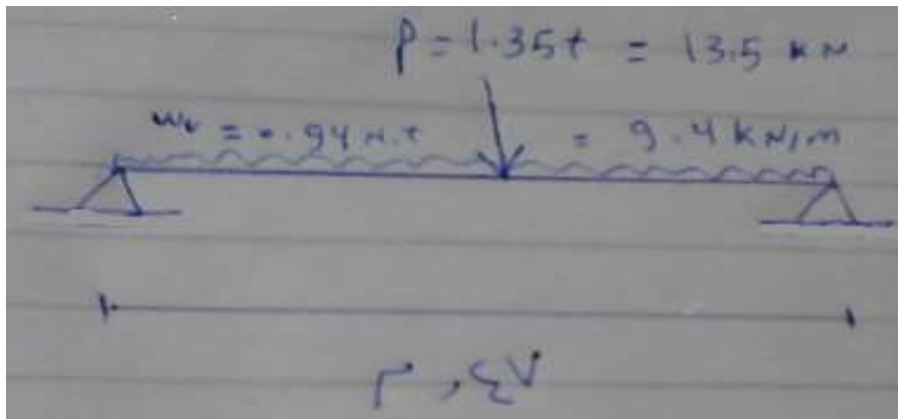 P = 1.35t = 13.5 kN
w = ٠.94 N.t = 9.4 kN/m
٢,٤٧